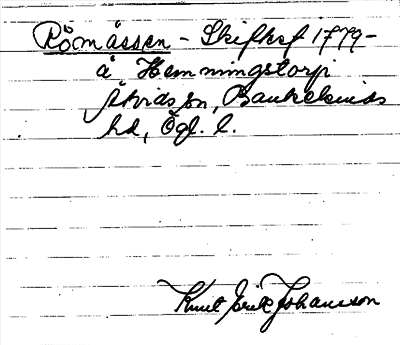 Römåssen - Skifteskf 1779-
å Hemmingstorp i
Åtvids sn, Bankekinds
hd, Ögl. l.
Knut Erik Johansson